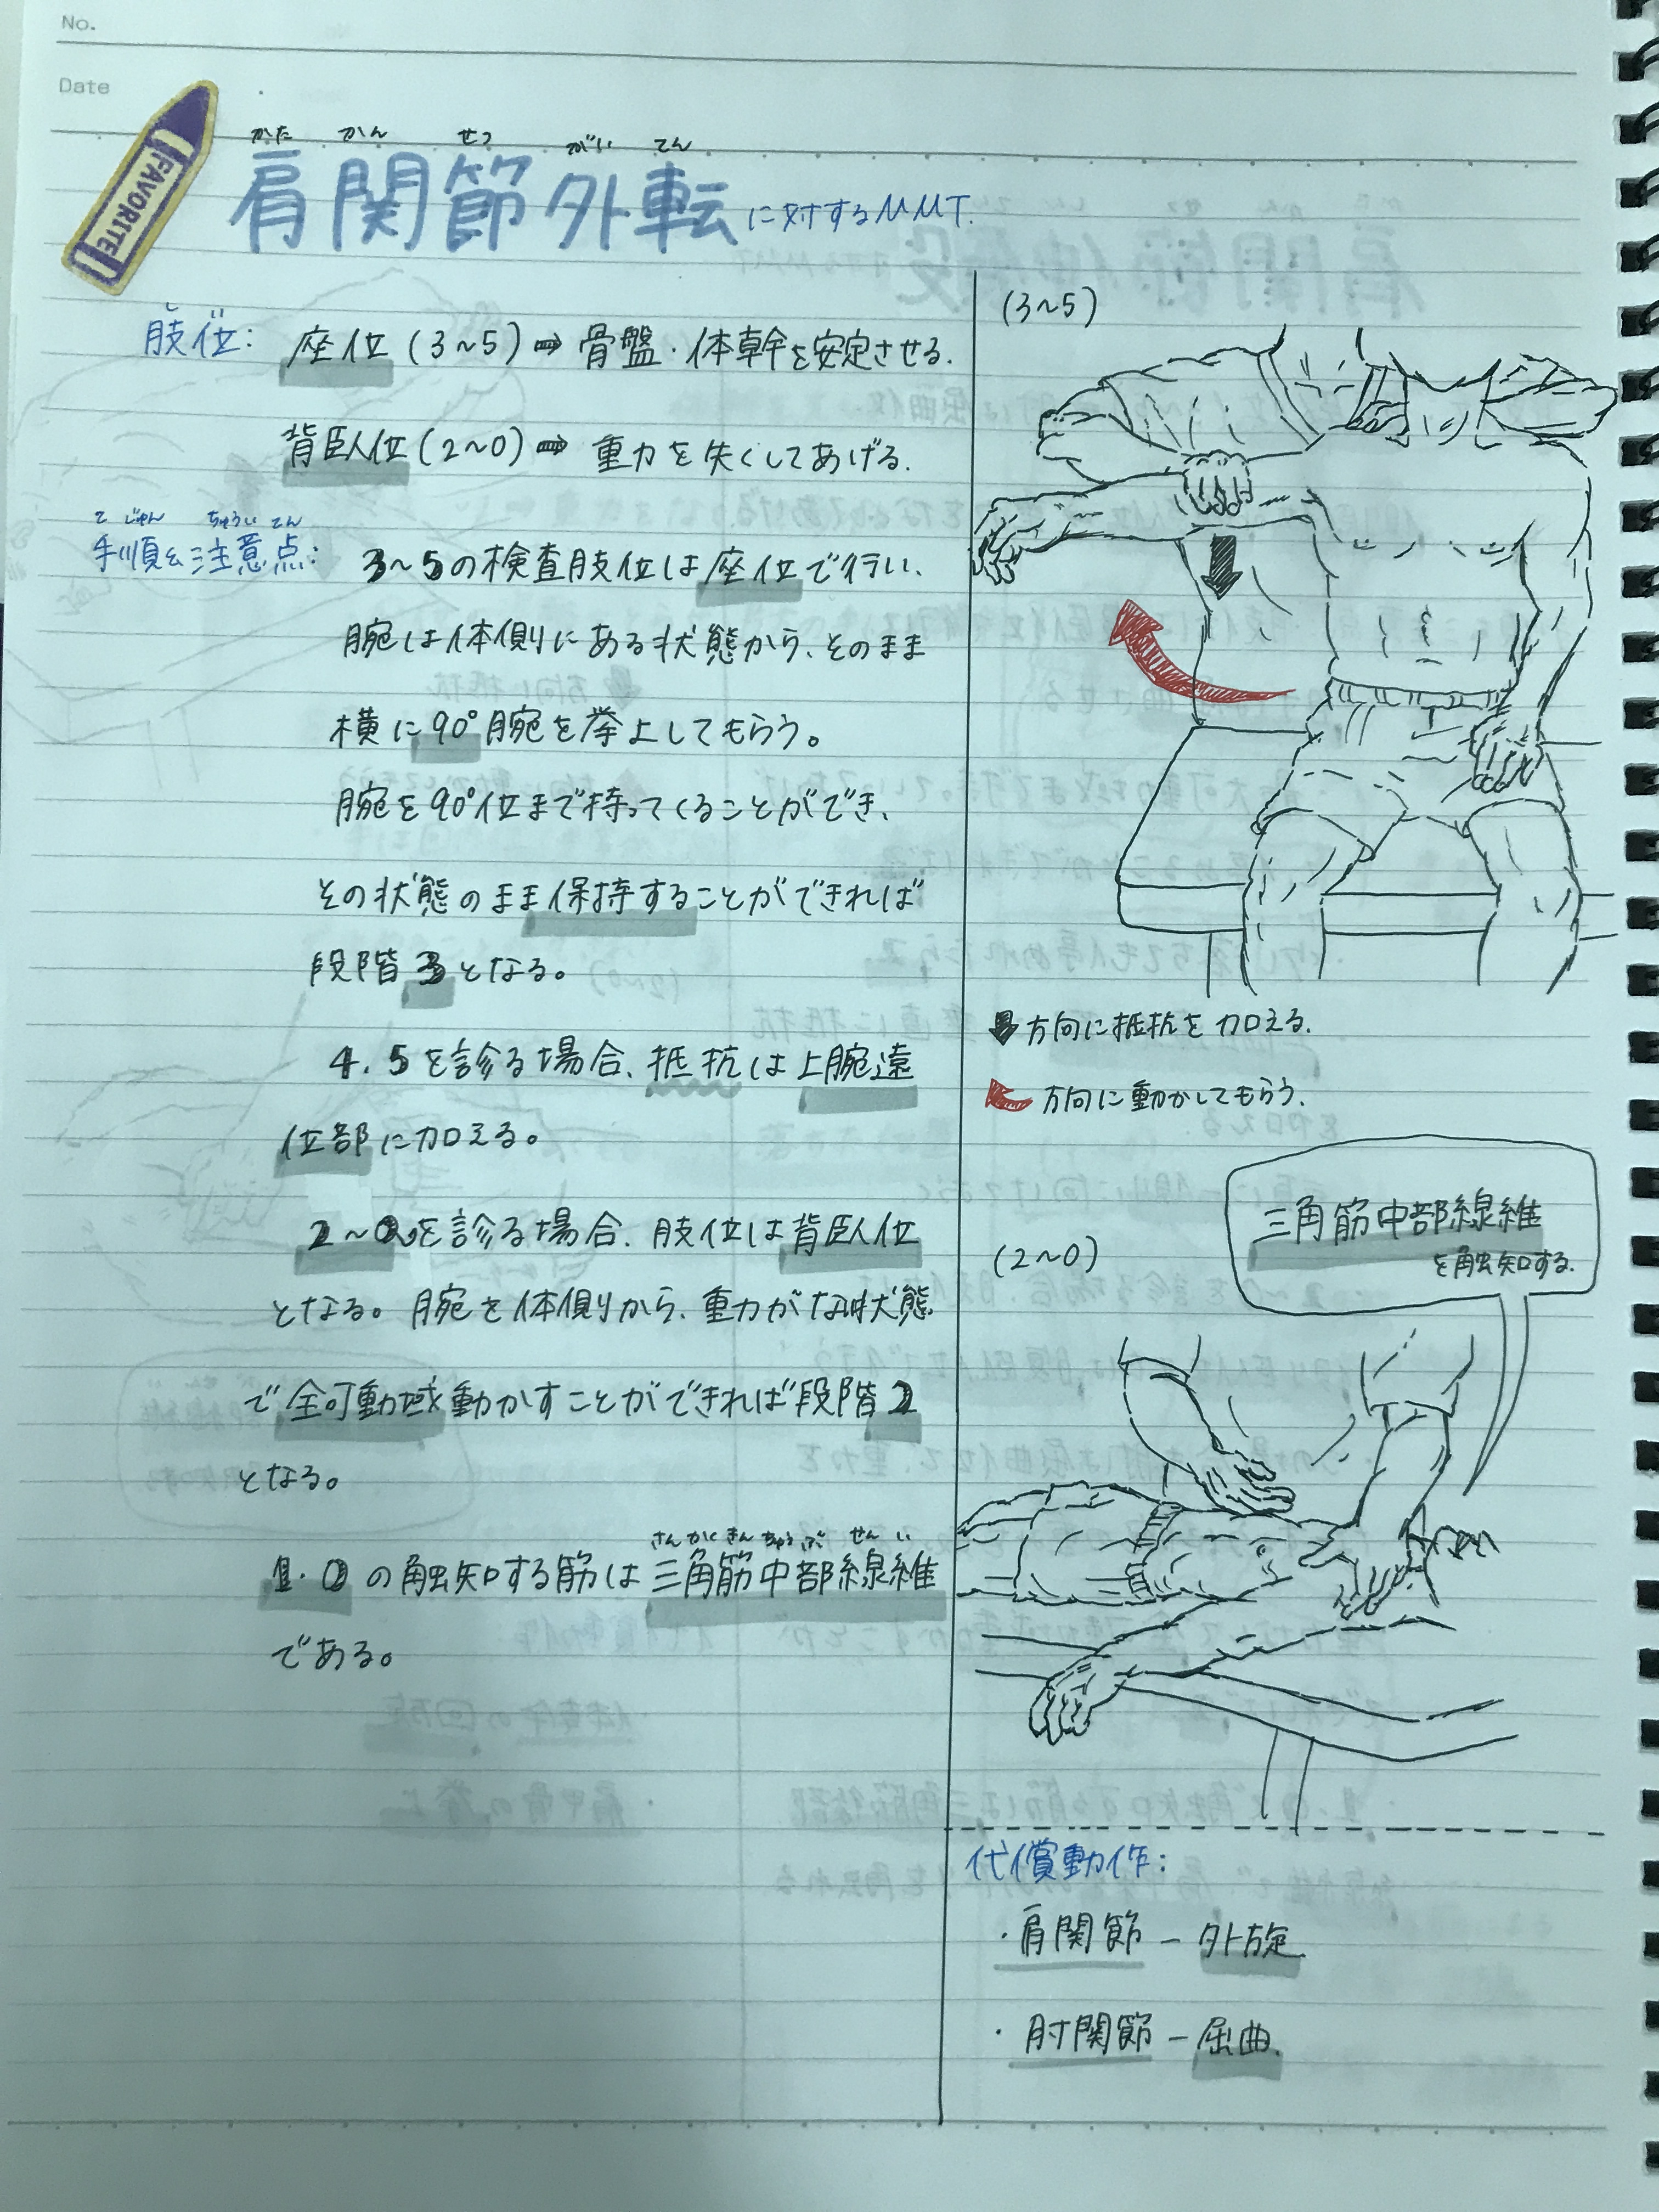 No.
Date
FAVORITE
かた かん せつ がい てん
肩関節外転に対するMMT.
しい
肢位: 座位(3~5)⇒骨盤・体幹を安定させる.
背臥位(2~0)⇒重力を失くしてあげる.
てじゅん ちゅういてん
手順&注意点: 3~5の検査肢位は座位で行い、
腕は体側にある状態から、そのまま
横に90°腕を挙上してもらう。
腕を90°位まで持ってくることができ、
その状態のまま保持することができれば
段階3となる。
4.5を診る場合、抵抗は上腕遠
位部に加える。
2~0を診る場合、肢位は背臥位
となる。腕を体側から、重力がない状態
で全可動域動かすことができれば段階2
となる。
さんかくきんちゅうぶせんい
1.0の触知する筋は三角筋中部線維
である。
(3~5)
方向に抵抗を加える.
方向に動かしてもらう.
三角筋中部線維
を触知する.
(2~0)
代償動作:
・肩関節ー外旋
・肘関節ー屈曲.